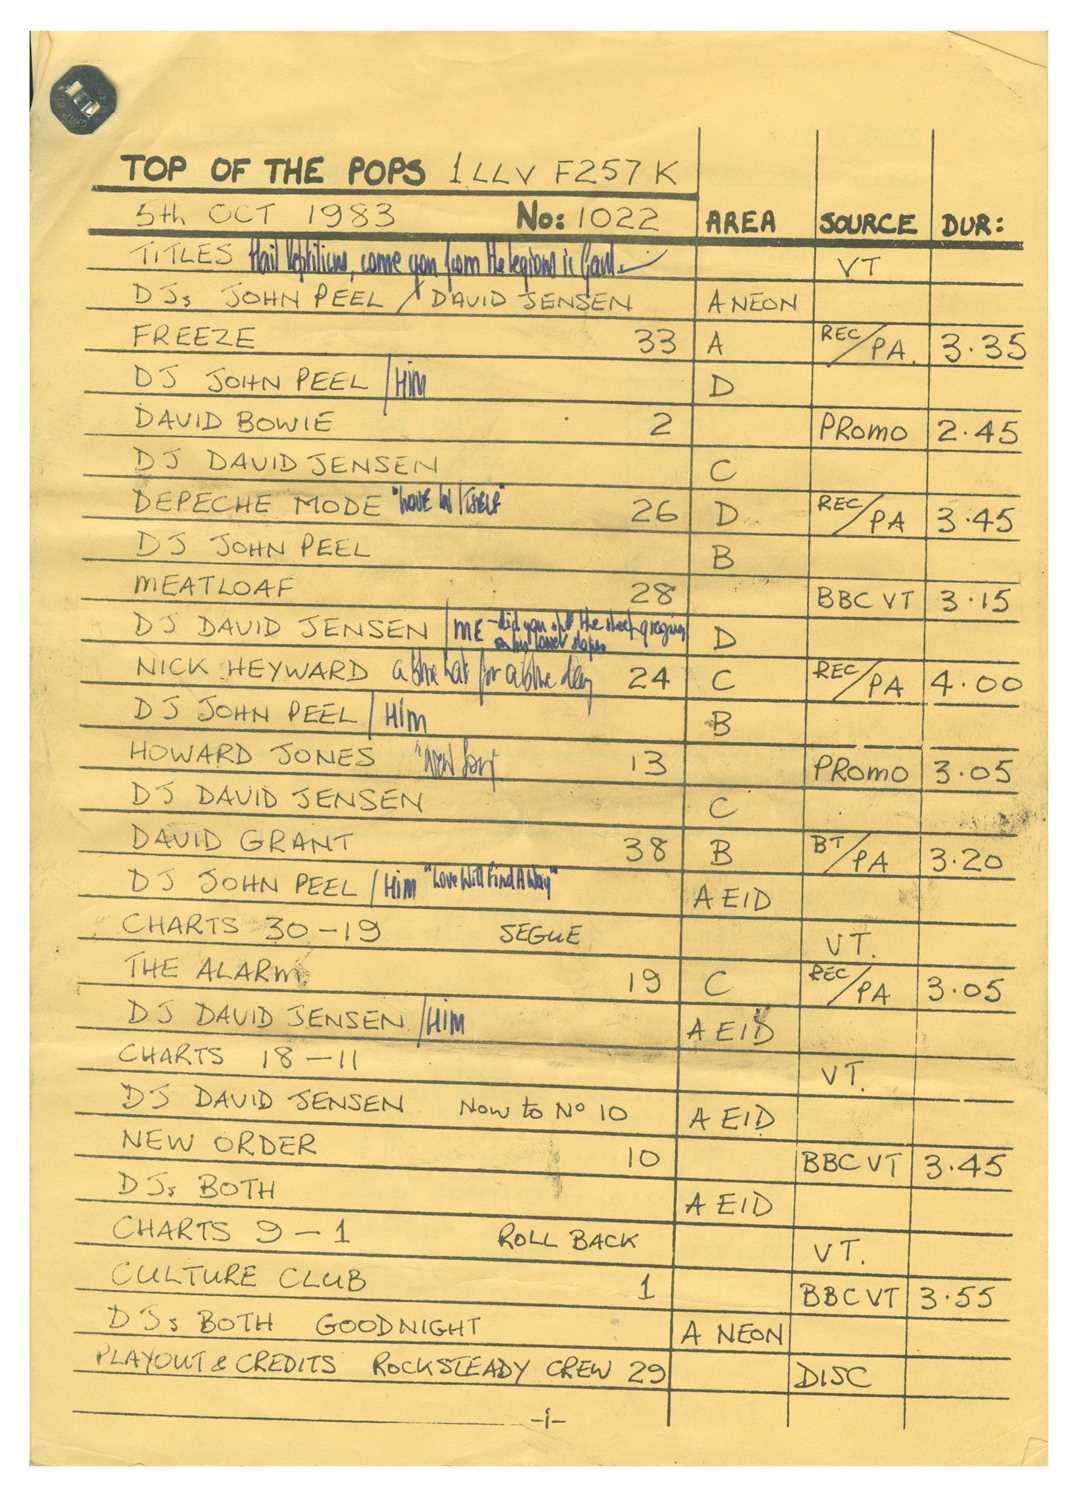 TOP OF THE POPS 1LLV F257K
5th OCT 1983 No: 1022 AREA SOURCE DUR:
TITLES Hail come you from the legions in Gaul VT
DJs JOHN PEEL / DAVID JENSEN A NEON
FREEZE 33 A REC/PA. 3.35
DJ JOHN PEEL / HiM D
DAVID BOWIE 2 PROMO 2.45
DJ DAVID JENSEN C
DEPECHE MODE "LOVE IN ITSELF" 26 D REC/PA 3.45
DJ JOHN PEEL B
MEATLOAF 28 BBC VT 3.15
DJ DAVID JENSEN / ME - did you the sheep grazing D
on his lower slopes
NICK HEYWARD a blue hat for a blue day 24 C REC/PA 4.00
DJ JOHN PEEL / Him B
HOWARD JONES "New Song" 13 PROMO 3.05
DJ DAVID JENSEN C
DAVID GRANT 38 B BT/PA 3.20
DJ JOHN PEEL / Him "Love Will Find A Way" A EID
CHARTS 30-19 SEGUE VT.
THE ALARM. 19 C REC/PA 3.05
DJ DAVID JENSEN / HiM A EID
CHARTS 18-11 VT.
DJ DAVID JENSEN NOW TO No 10 A EID
NEW ORDER 10 BBC VT 3.45
DJs BOTH A EID
CHARTS 9-1 ROLL BACK VT.
CULTURE CLUB 1 BBC VT 3.55
DJs BOTH GOODNIGHT A NEON
PLAYOUT & CREDITS ROCKSTEADY CREW 29 DISC
-i-